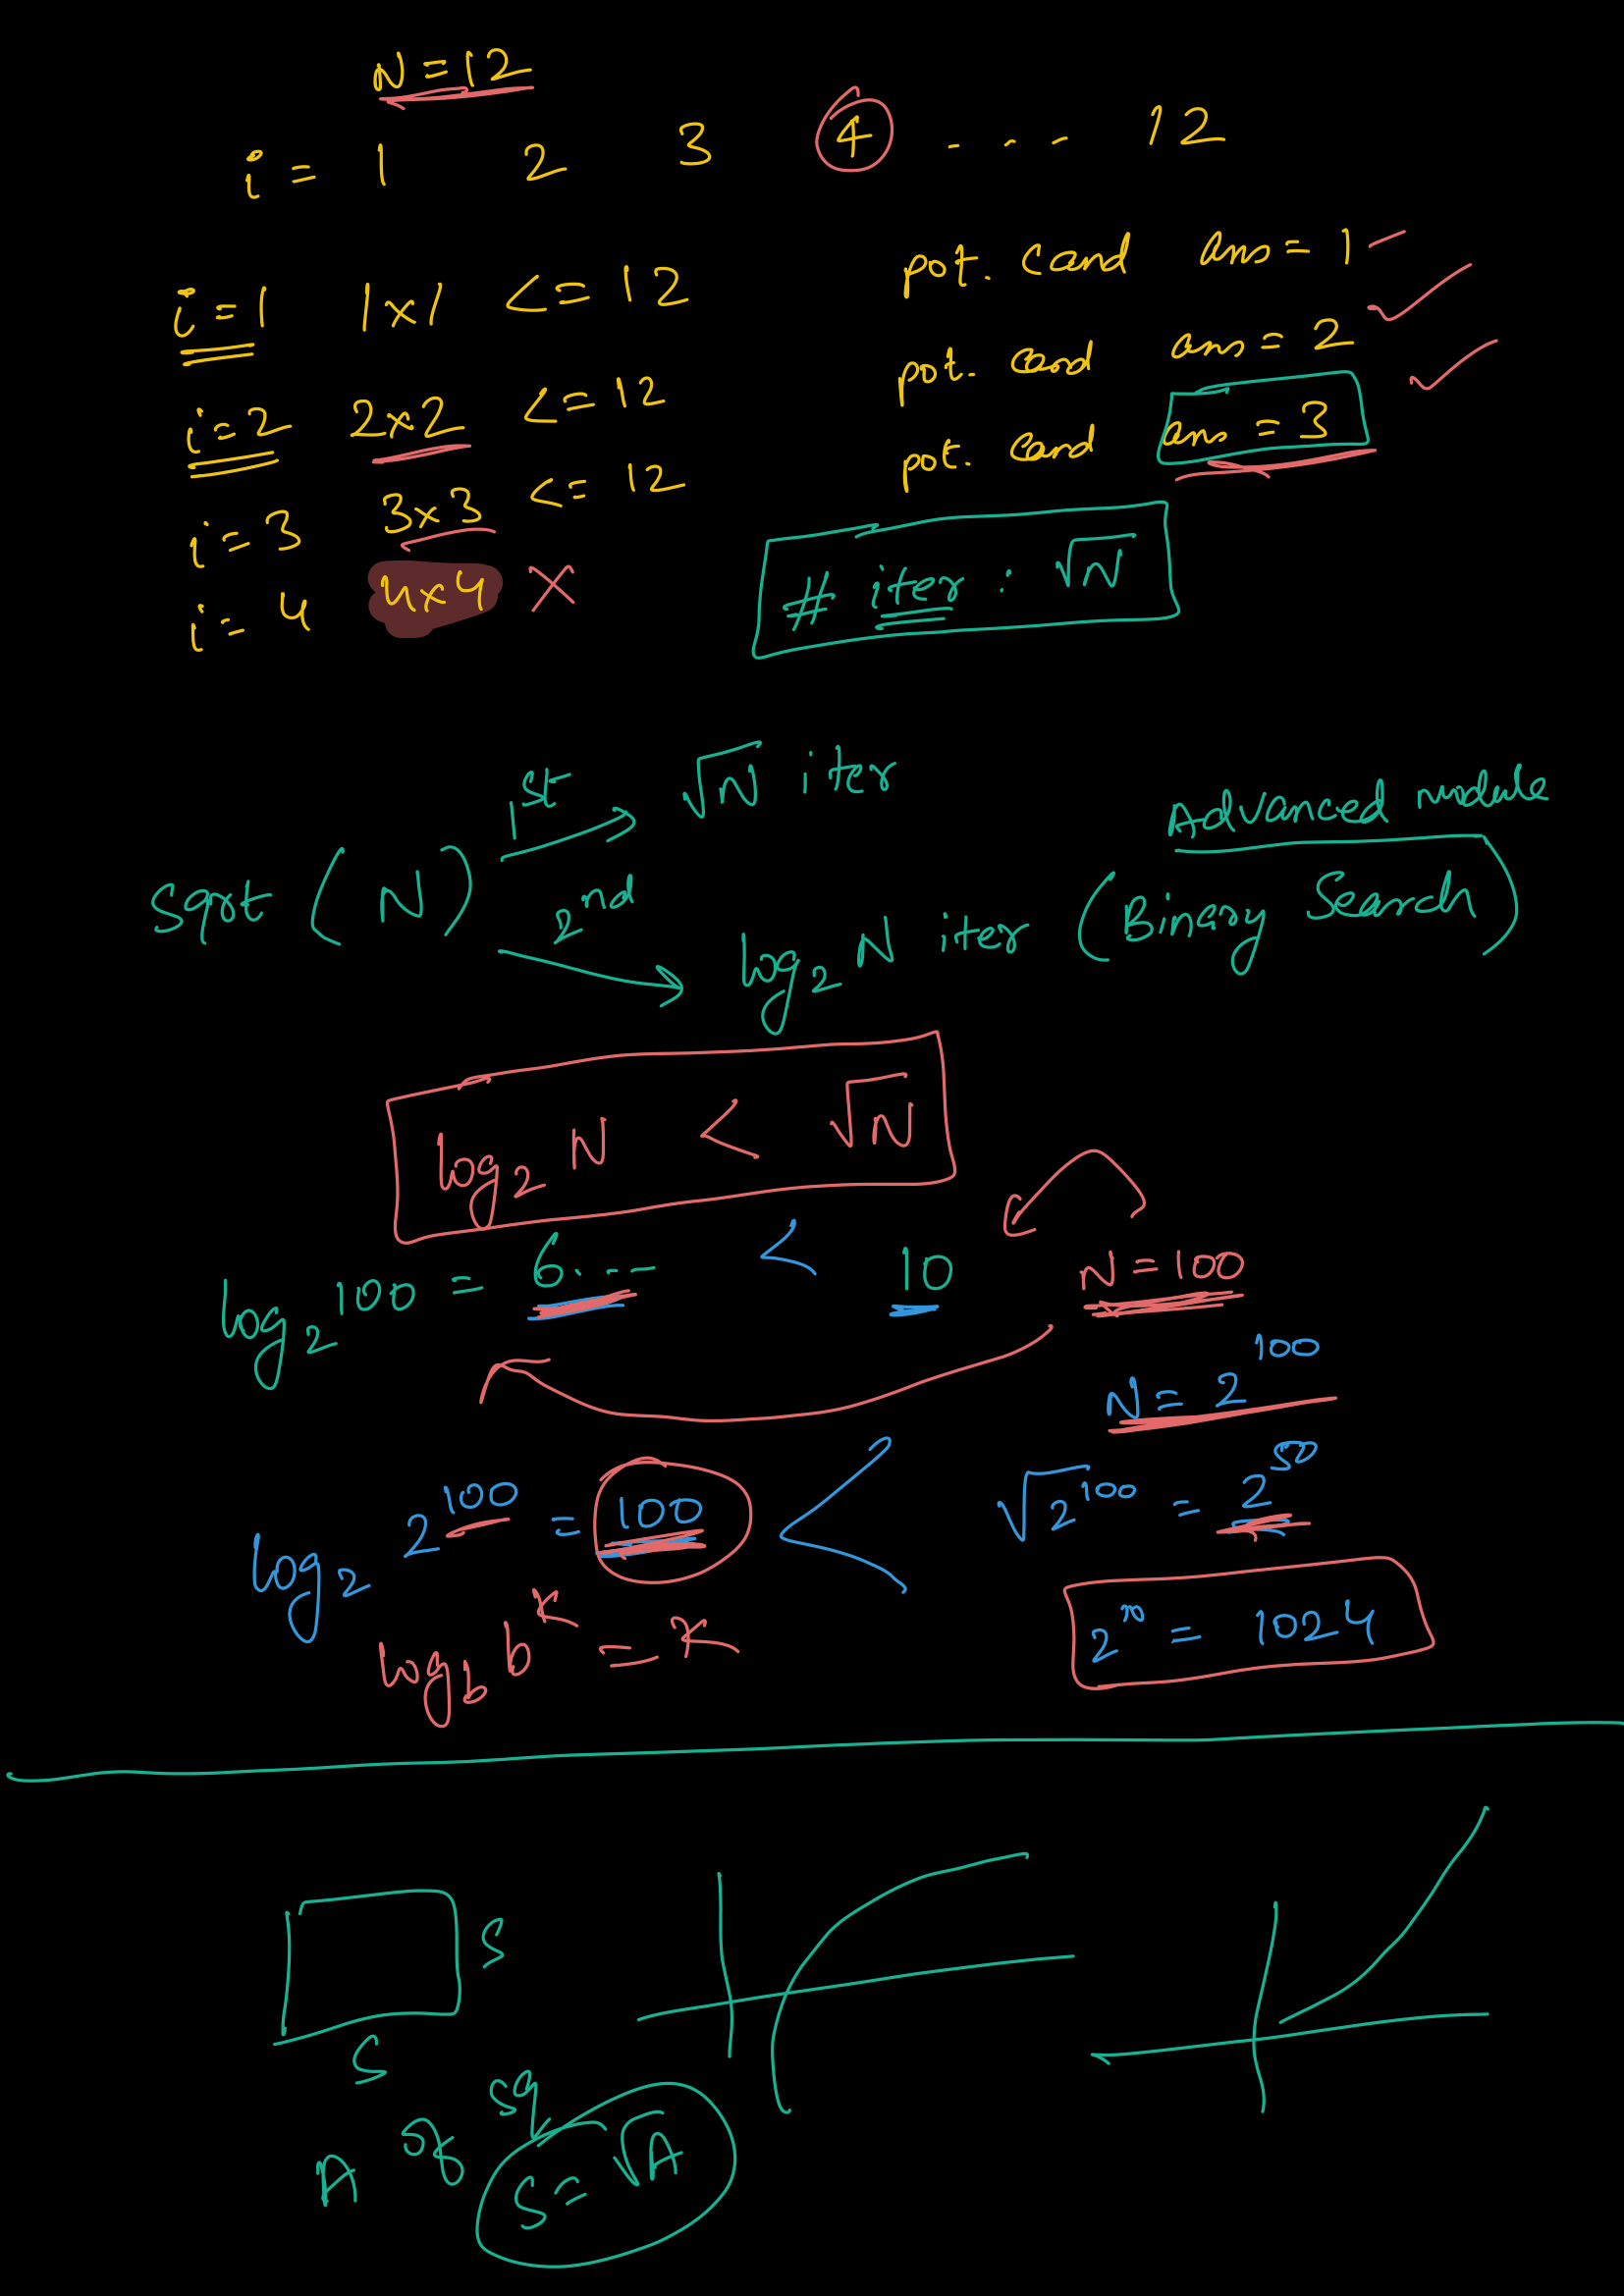 N = 12
i = 1 2 3 4 - - - - 12
i = 1 1x1 <= 12 pot. cand ans = 1
i = 2 2x2 <= 12 pot. cand ans = 2
i = 3 3x3 <= 12 pot. cand ans = 3
i = 4 4x4 X
# iter : √N
Sqrt (N)
1st √N iter
2nd log₂ N iter (Binary Search)
Advanced module
log₂ N < √N
log₂ 100 = 6... < 10 N = 100
N = 2¹⁰⁰
log₂ 2¹⁰⁰ = 100 < √2¹⁰⁰ = 2⁵⁰
log_b b^x = x
2¹⁰ = 1024
S
S
A of sq
S = √A